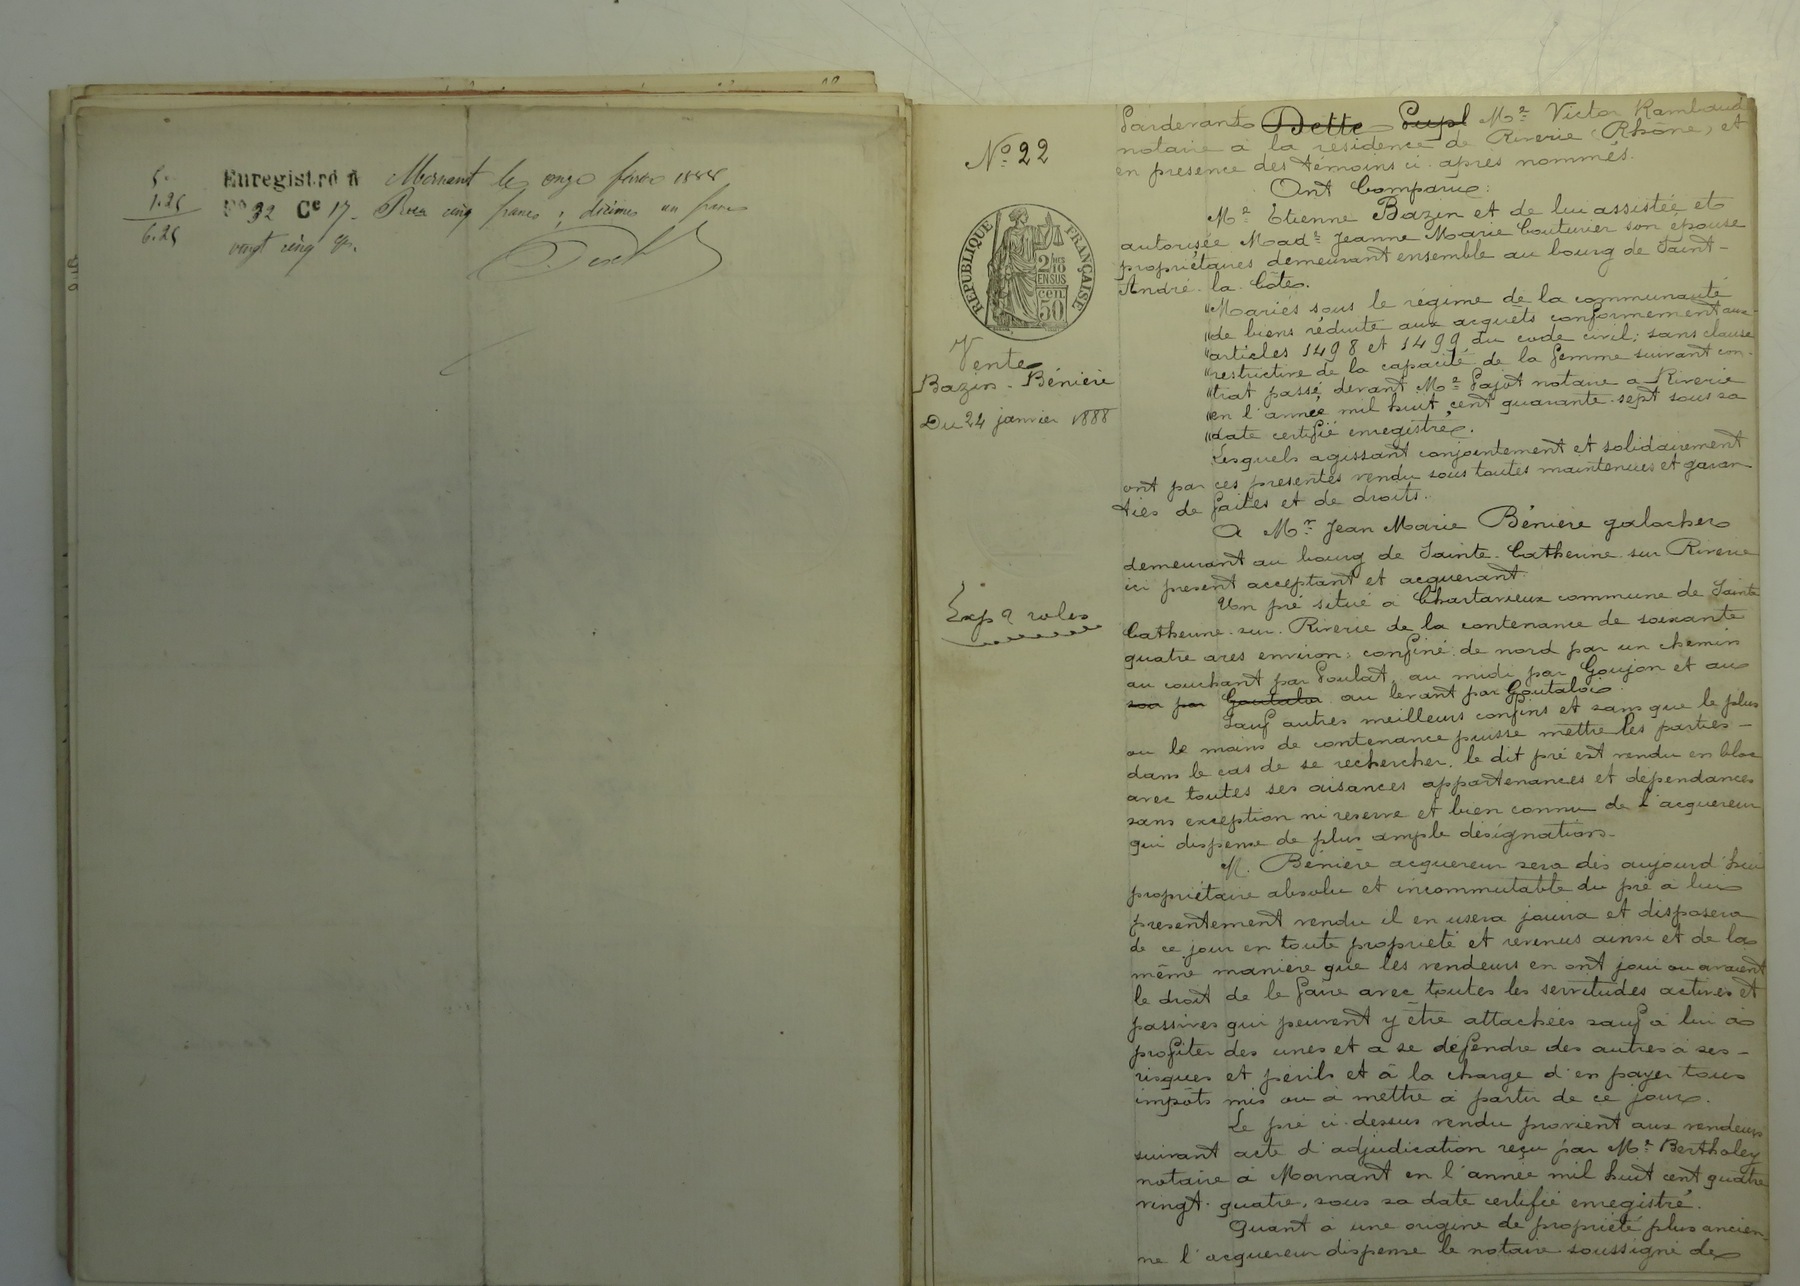 5..
1.25
6.25
Enregistré à Mornant le onze février 1888
F° 32 Ce 17. Reçu cinq francs, décimes un franc
vingt cinq c.
N° 22
RÉPUBLIQUE FRANÇAISE
2/10 EN SUS
50 cen
Vente
Bazin - Bénière
Du 24 janvier 1888
Exp 2 roles
Pardevant Dette Supl Me Victor Rambaud
notaire à la résidence de Riverie (Rhône) et
en présence des témoins ci-après nommés.
Ont Comparu:
Mr Etienne Bazin et de lui assistée et
autorisée Made Jeanne Marie Couturier son épouse
propriétaires demeurant ensemble au bourg de Saint-
André-la-Côte.
"Mariés sous le régime de la communauté
"de biens réduite aux acquêts conformément aux
"articles 1498 et 1499 du code civil; sans clause
"restrictive de la capacité de la femme suivant con-
"trat passé devant Me Pajot notaire à Riverie
"en l'année mil huit cent quarante-sept sous sa
"date certifié enregistré.
Lesquels agissant conjointement et solidairement
ont par ces présentes vendu sous toutes maintenues et garan-
ties de faites et de droits.
A Mr Jean Marie Bénière galocher
demeurant au bourg de Sainte-Catherine-sur-Riverie
ici présent acceptant et acquerant.
Un pré situé à Chartavieux commune de Sainte
Catherine-sur-Riverie de la contenance de soixante
quatre ares environ; confiné: de nord par un chemin
au couchant par Poulat, au midi par Goujon et au
soir par Goutalois au levant par Goutalois.
Sauf autres meilleurs confins et sans que le plus
ou le moins de contenance puisse mettre les parties -
dans le cas de se rechercher. le dit pré est vendu en bloc
avec toutes ses aisances appartenances et dépendances
sans exception ni reserve et bien connu de l'acquereur
qui dispense de plus ample désignation.
M. Bénière acquereur sera dès aujourd'hui
propriétaire absolu et incommutable du pré à lui
présentement vendu il en usera jouira et disposera
de ce jour en toute propriété et revenus ainsi et de la
même manière que les vendeurs en ont joui ou avaient
le droit de le faire avec toutes les servitudes actives et
passives qui peuvent y être attachées sauf à lui à
profiter des unes et à se défendre des autres à ses -
risques et périls et à la charge d'en payer tous
impôts mis ou à mettre à partir de ce jour.
Le pré ci-dessus vendu provient aux vendeurs
suivant acte d'adjudication reçu par Me Bertholey
notaire à Mornant en l'année mil huit cent quatre
vingt-quatre, sous sa date certifié enregistré.
Quant à une origine de propriété plus ancien-
ne l'acquereur dispense le notaire soussigné de